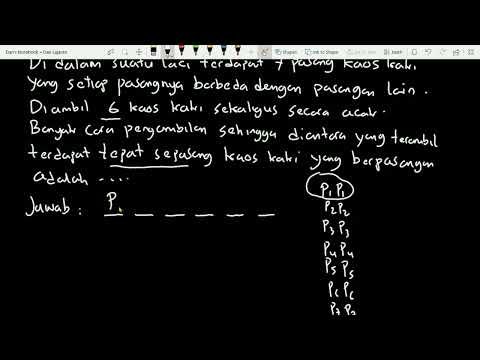 Dan's Notebook - Dan Lajanto
Shapes
Ink to Shape
Di dalam suatu laci terdapat 7 pasang kaos kaki
yang setiap pasangnya berbeda dengan pasangan lain.
Diambil 6 kaos kaki sekaligus secara acak.
Banyak cara pengambilan sehingga diantara yang terambil
terdapat tepat sepasang kaos kaki yang berpasangan
adalah ....
Jawab : P₁ _ _ _ _ _
P₁ P₁
P₂ P₂
P₃ P₃
P₄ P₄
P₅ P₅
P₆ P₆
P₇ P₇